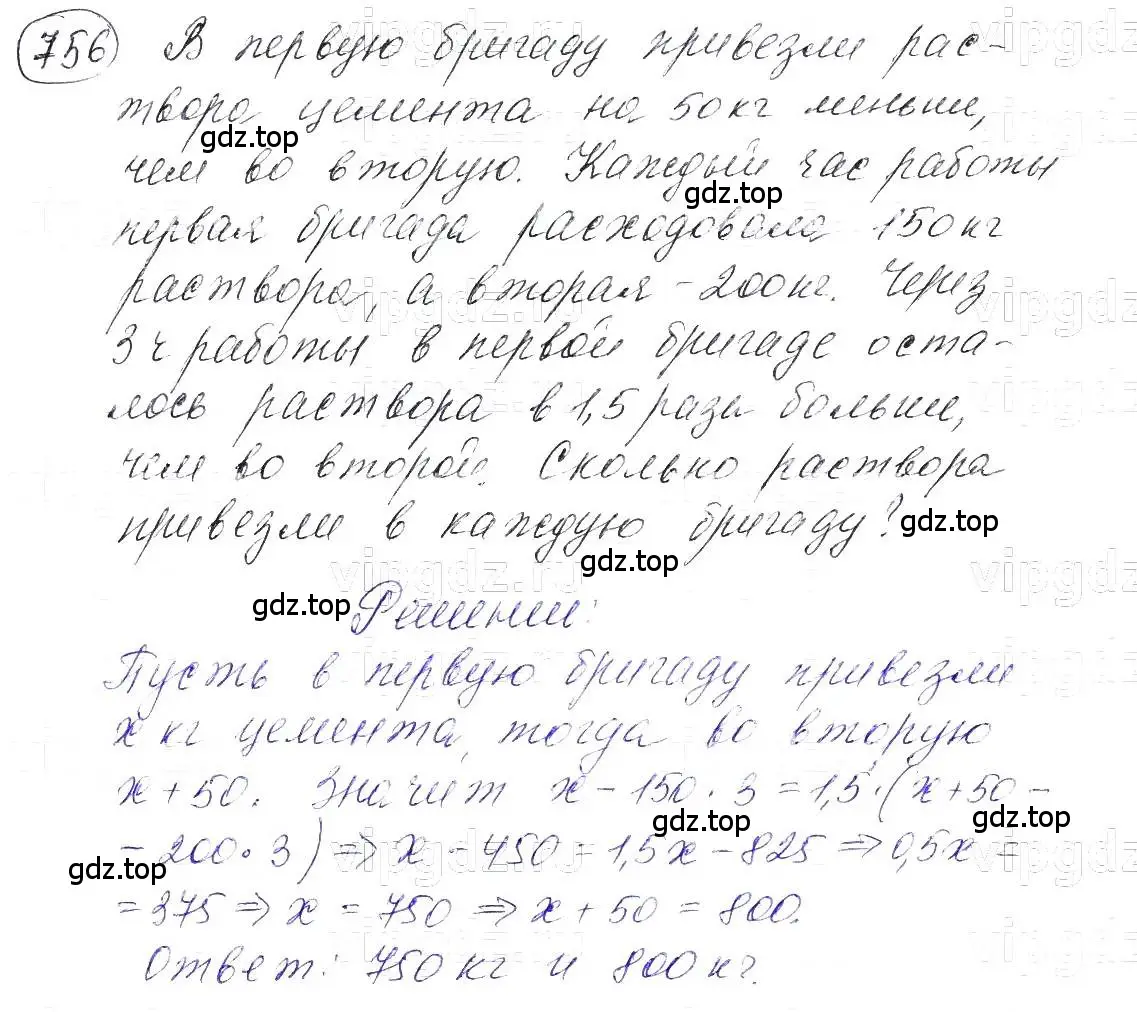 756 В первую бригаду привезли рас-
твора цемента на 50 кг меньше,
gdz.top
чем во вторую. Каждый час работы
gdz.top
первая бригада расходовала 150 кг
раствора, а вторая - 200 кг. Через
3 ч работы в первой бригаде оста-
лось раствора в 1,5 раза больше,
чем во второй. Сколько раствора
привезли в каждую бригаду? gdz.top
gdz.top
gdz.top Решение:
Пусть в первую бригаду привезли
x кг цемента, тогда во вторую
x + 50. Значит x - 150 · 3 = 1,5 · (x + 50 -
gdz.top
- 200 · 3) => x - 450 = 1,5x - 825 => 0,5x =
gdz.top
= 375 => x = 750 => x + 50 = 800.
Ответ: 750 кг и 800 кг.